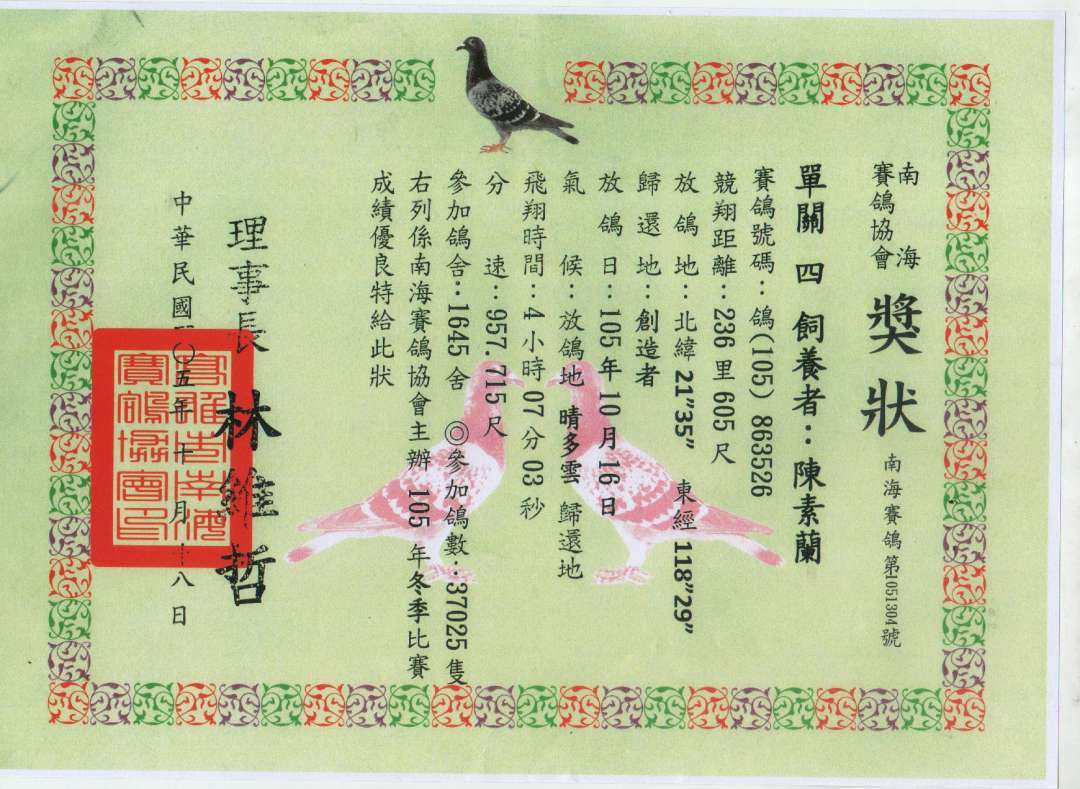 南海
賽鴿協會
獎狀
南海賽鴿第1051304號
單關 四 飼養者：陳素蘭
賽鴿號碼：鴿(105) 863526
競翔距離：236里605尺
放鴿地：北緯21”35” 東經118”29”
歸還地：創造者
放鴿日：105年10月16日
氣候：放鴿地 晴多雲 歸還地
飛翔時間：4小時07分03秒
分速：957.715尺
參加鴿舍：1645舍 ◎參加鴿數：37025隻
右列係南海賽鴿協會主辦 105 年冬季比賽
成績優良特給此狀
理事長 林維哲
中華民國 〇五年十 月十八日